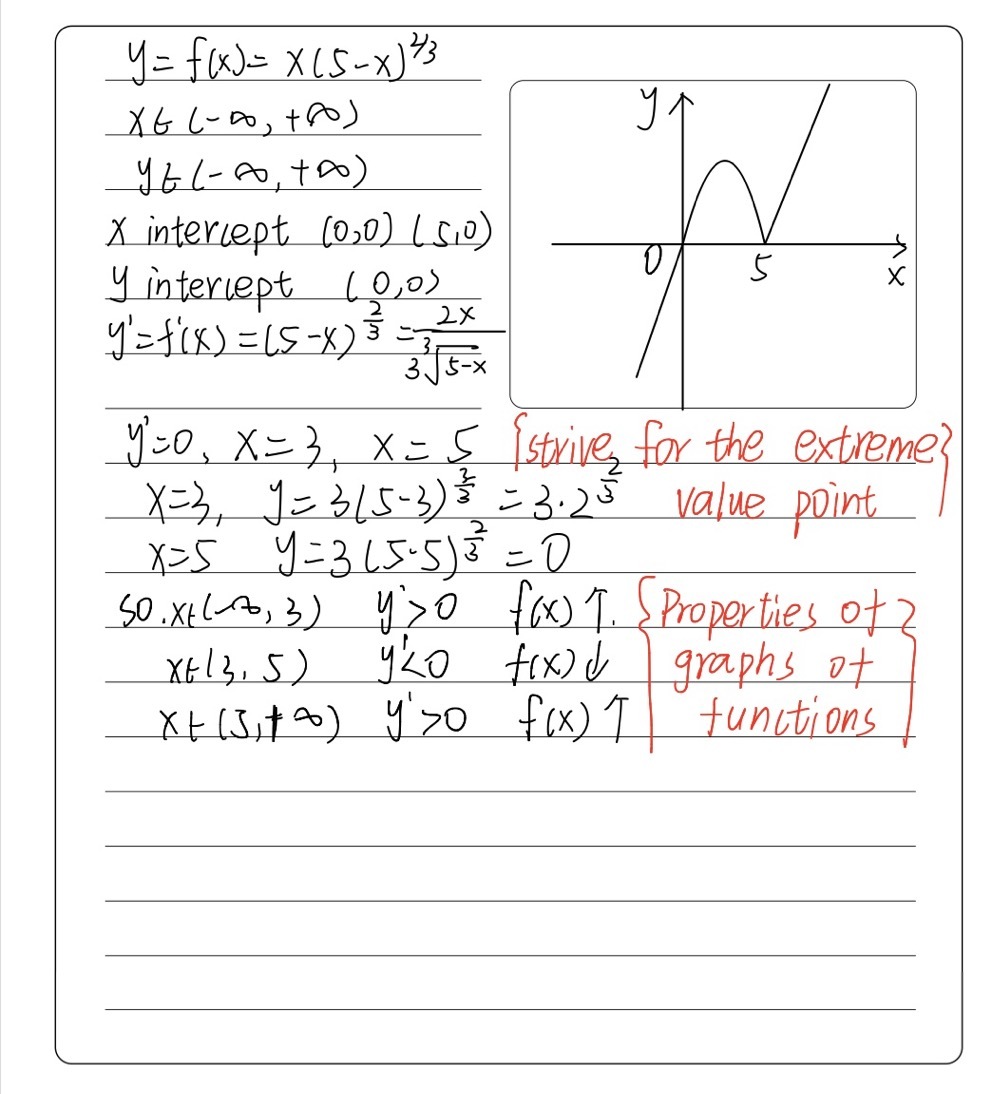 y = f(x) = x(5-x)^{2/3}
x∈(-∞, +∞)
y∈(-∞, +∞)
x intercept (0,0) (5,0)
y intercept (0,0)
y'=f'(x) = (5-x)^{\frac{2}{3}} = \frac{2x}{3\sqrt[3]{5-x}}
y
0
5
x
y'=0, x=3, x=5 {strive for the extreme}
x=3, y=3(5-3)^{\frac{2}{3}} = 3·2^{\frac{2}{3}} value point
x=5 y=3(5·5)^{\frac{2}{3}} = 0
so. x∈(-∞, 3) y'>0 f(x)↑. {Properties of}
x∈(3, 5) y'<0 f(x)↓ graphs of
x∈(5, +∞) y'>0 f(x)↑ functions